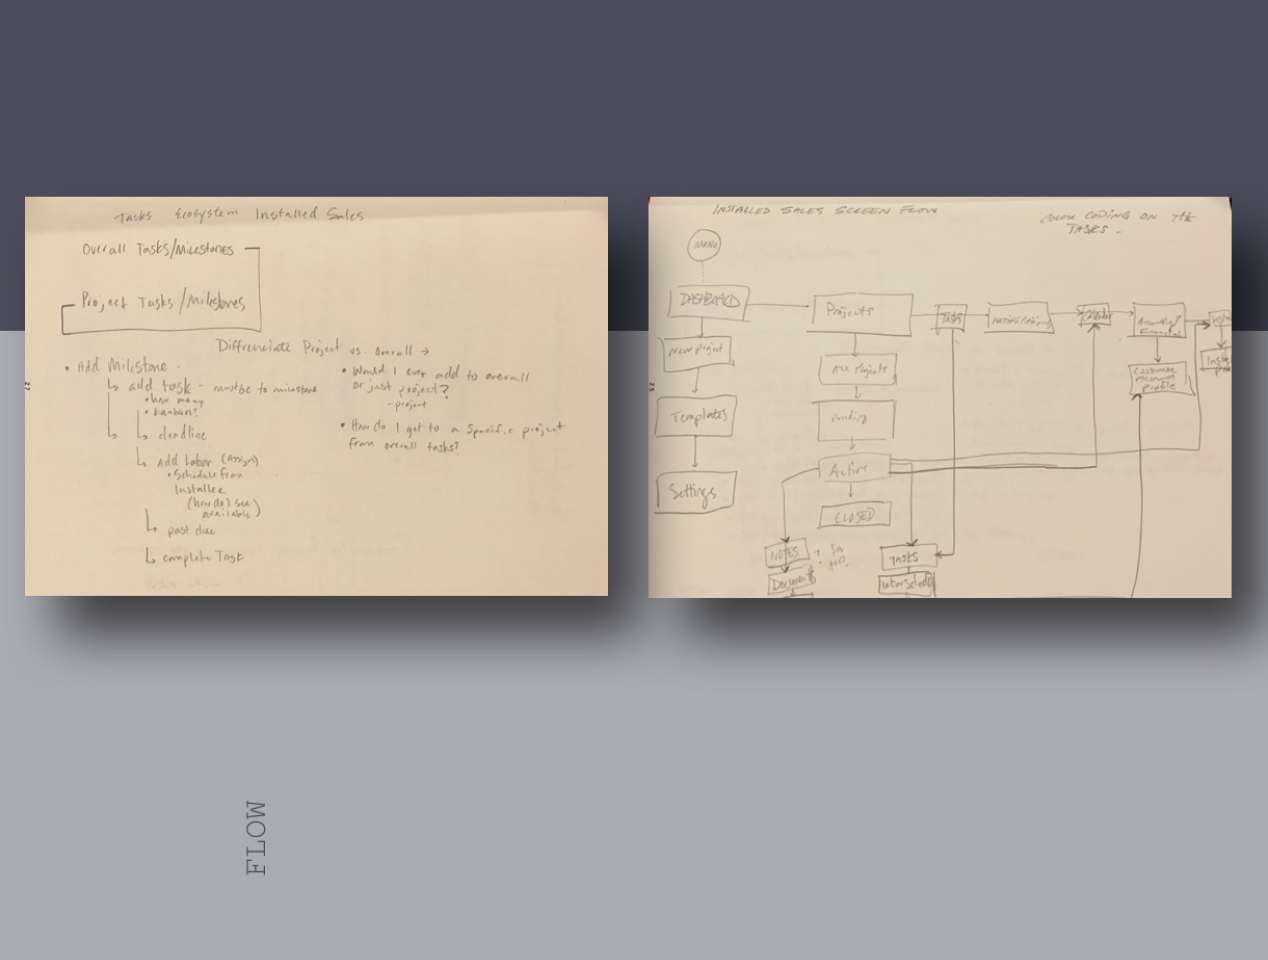 Tasks Ecosystem Installed Sales
Overall Tasks/Milestones
Project Tasks/Milestones
Differenciate Project vs. Overall →
• Add Milestone
add task - must be to milestone
• how many
• kanban?
deadline
Add Labor (Assign)
• Schedule from
Installer
(how do I see
available)
past due
complete Task
• Would I ever add to overall
or just project?
- project
• How do I get to a specific project
from overall tasks?
27
INSTALLED SALES SCREEN FLOW
COLOR CODING ON THE
TASKS -
MENU
DASHBOARD
New Project
Templates
Settings
Projects
All Projects
Pending
Active
CLOSED
Tasks
Notifications
Customer
Account
profile
NOTES
Document
TASKS
FLOW